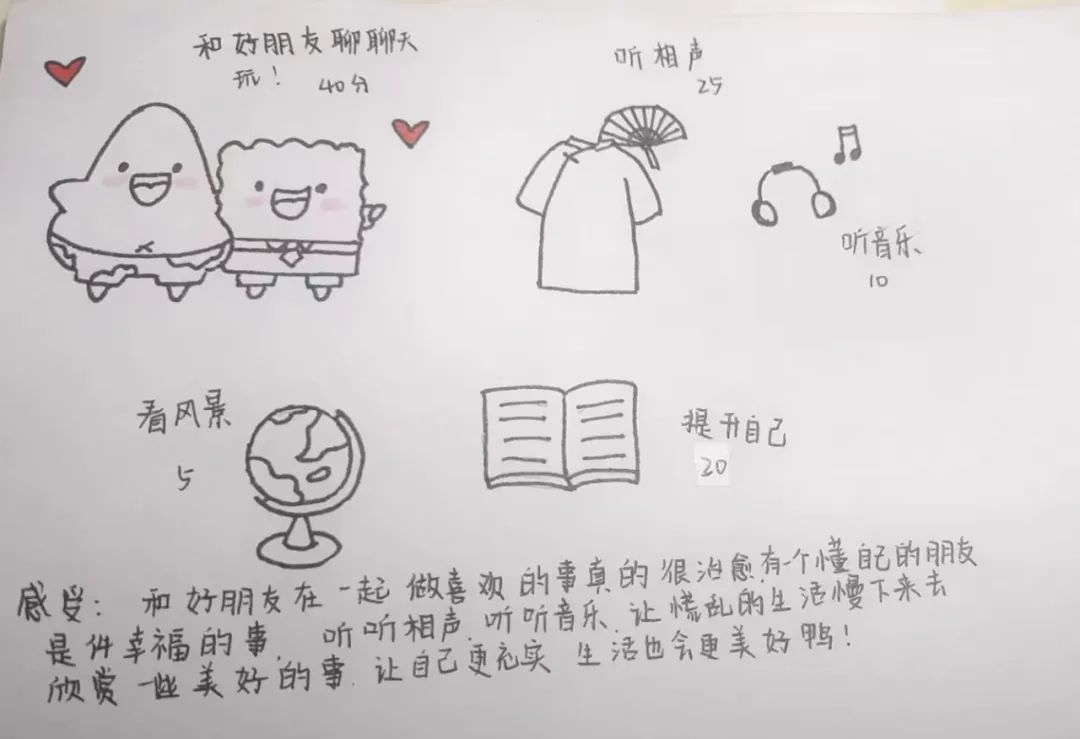 和好朋友聊聊天
玩！ 40分
听相声
25
听音乐
10
看风景
5
提升自己
20
感受：和好朋友在一起做喜欢的事真的很治愈有一个懂自己的朋友
是件幸福的事，听听相声，听听音乐，让慌乱的生活慢下来去
欣赏一些美好的事，让自己更充实 生活也会更美好鸭！